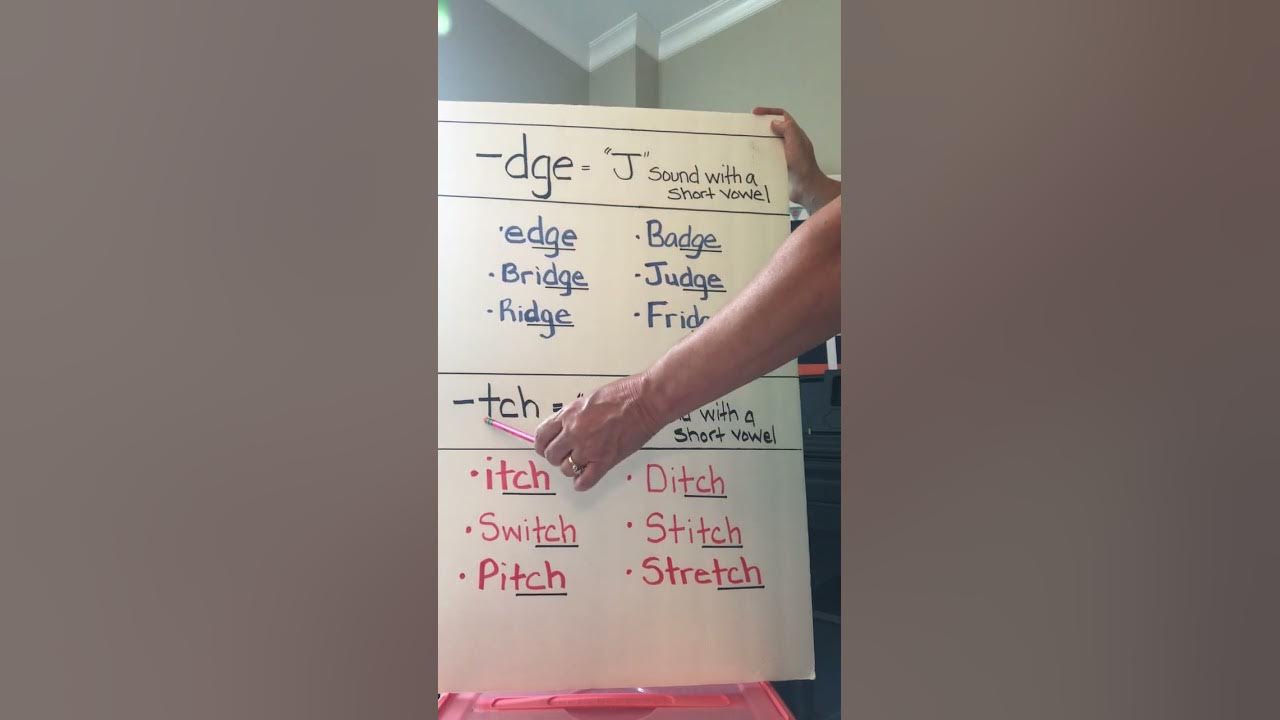 -dge = "J" sound with a
short vowel
·edge
·Badge
·Bridge
·Judge
·Ridge
-tch = with a
short vowel
·itch
·Ditch
·Switch
·Stitch
·Pitch
·Stretch